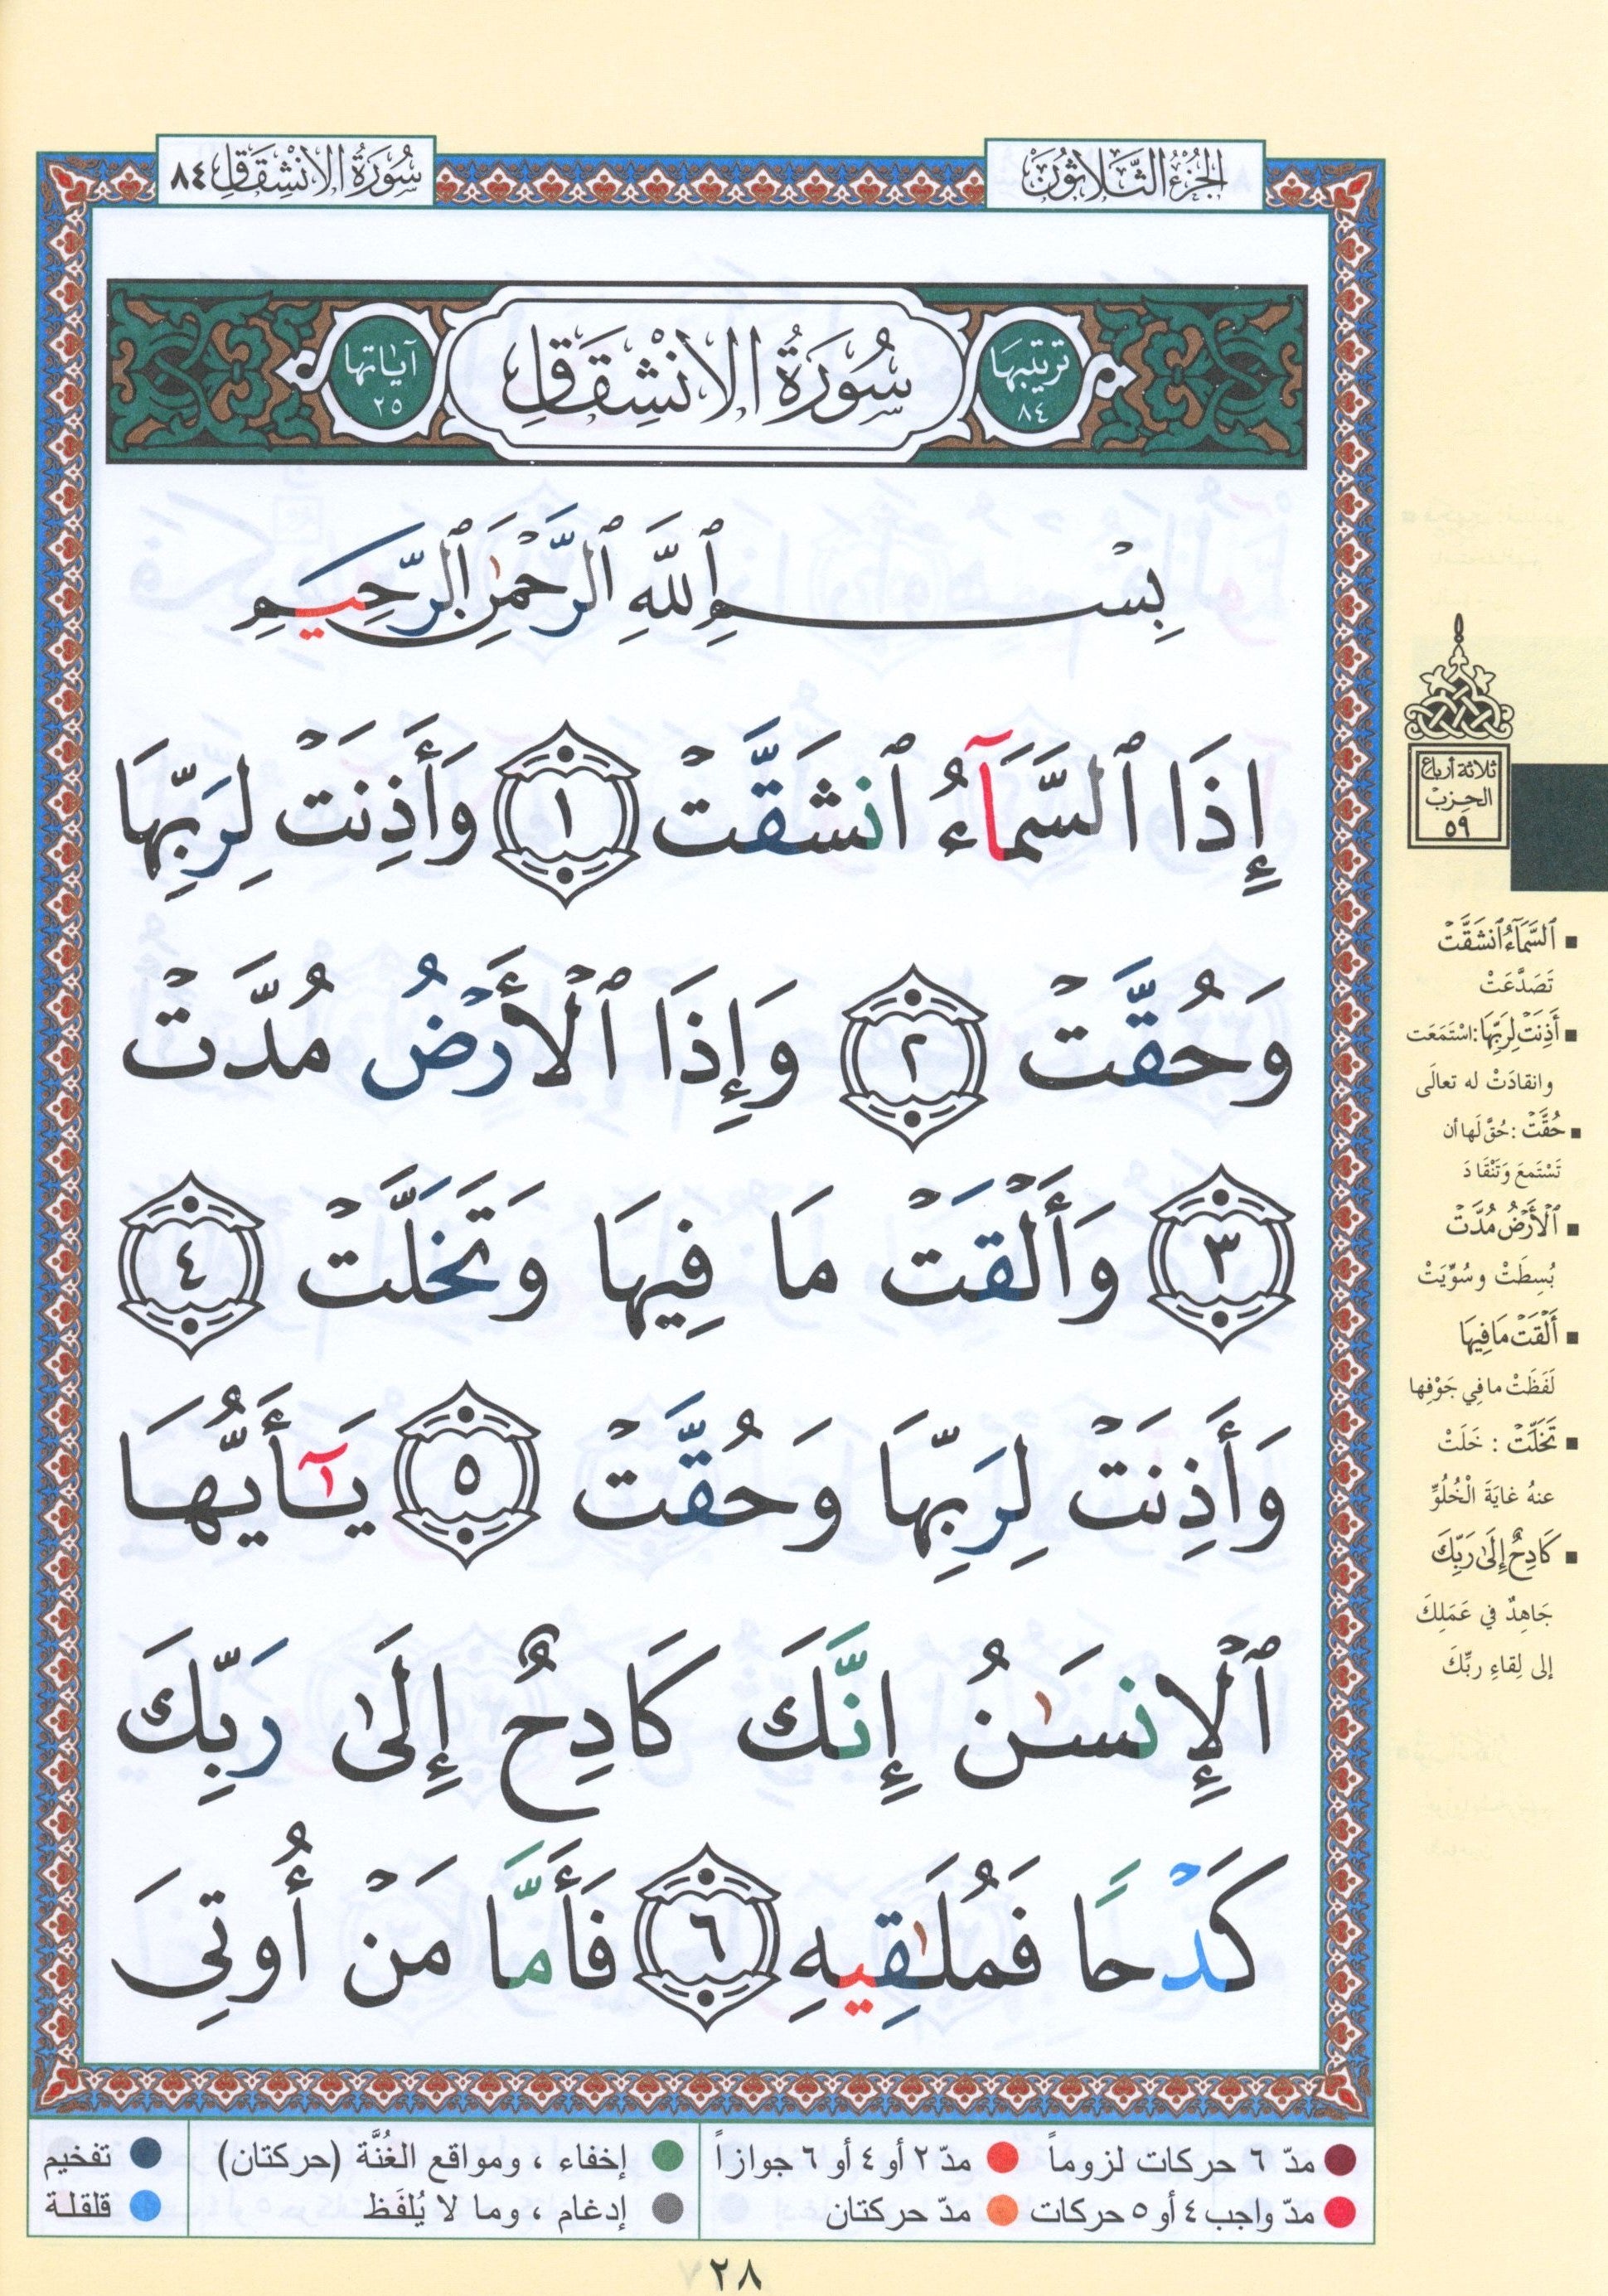 الجُزْءُ الثَّلَاثُونَ
سُورَةُ الِانْشِقَاقِ ٨٤
تَرتيبُهَا ٨٤
سُورَةُ الِانْشِقَاقِ
آيَاتهَا ٢٥
بِسْمِ ٱللَّهِ ٱلرَّحْمَٰنِ ٱلرَّحِيمِ
إِذَا ٱلسَّمَآءُ ٱنشَقَّتْ ١ وَأَذِنَتْ لِرَبِّهَا
وَحُقَّتْ ٢ وَإِذَا ٱلْأَرْضُ مُدَّتْ
٣ وَأَلْقَتْ مَا فِيهَا وَتَخَلَّتْ ٤
وَأَذِنَتْ لِرَبِّهَا وَحُقَّتْ ٥ يَـٰٓأَيُّهَا
ٱلْإِنسَـٰنُ إِنَّكَ كَادِحٌ إِلَىٰ رَبِّكَ
كَدْحًا فَمُلَـٰقِيهِ ٦ فَأَمَّا مَنْ أُوتِىَ
ثلاثة أرباع
الحزب
٥٩
▪ ٱلسَّمَآءُ ٱنشَقَّتْ
تَصَدَّعَتْ
▪ أَذِنَتْ لِرَبِّهَا: اسْتَمَعَت
وانقادَتْ له تعالَى
▪ حُقَّتْ: حُقَّ لَها أن
تَسْتَمِعَ وَتَنْقَادَ
▪ ٱلْأَرْضُ مُدَّتْ
بُسِطَتْ وسُوِّيَتْ
▪ أَلْقَتْ مَا فِيهَا
لَفَظَتْ ما في جَوْفِها
▪ تَخَلَّتْ: خَلَتْ
عنهُ غايَةَ الْخُلُوِّ
▪ كَادِحٌ إِلَىٰ رَبِّكَ
جَاهِدٌ في عَمَلِكَ
إلى لِقاءِ ربِّكَ
مدّ ٦ حركات لزوماً مدّ ٢ أو ٤ أو ٦ جوازاً
مدّ واجب ٤ أو ٥ حركات مدّ حركتان
إخفاء ، ومواقع الغُنَّة (حركتان)
إدغام ، وما لا يُلفَظ
تفخيم
قلقلة
٢٨